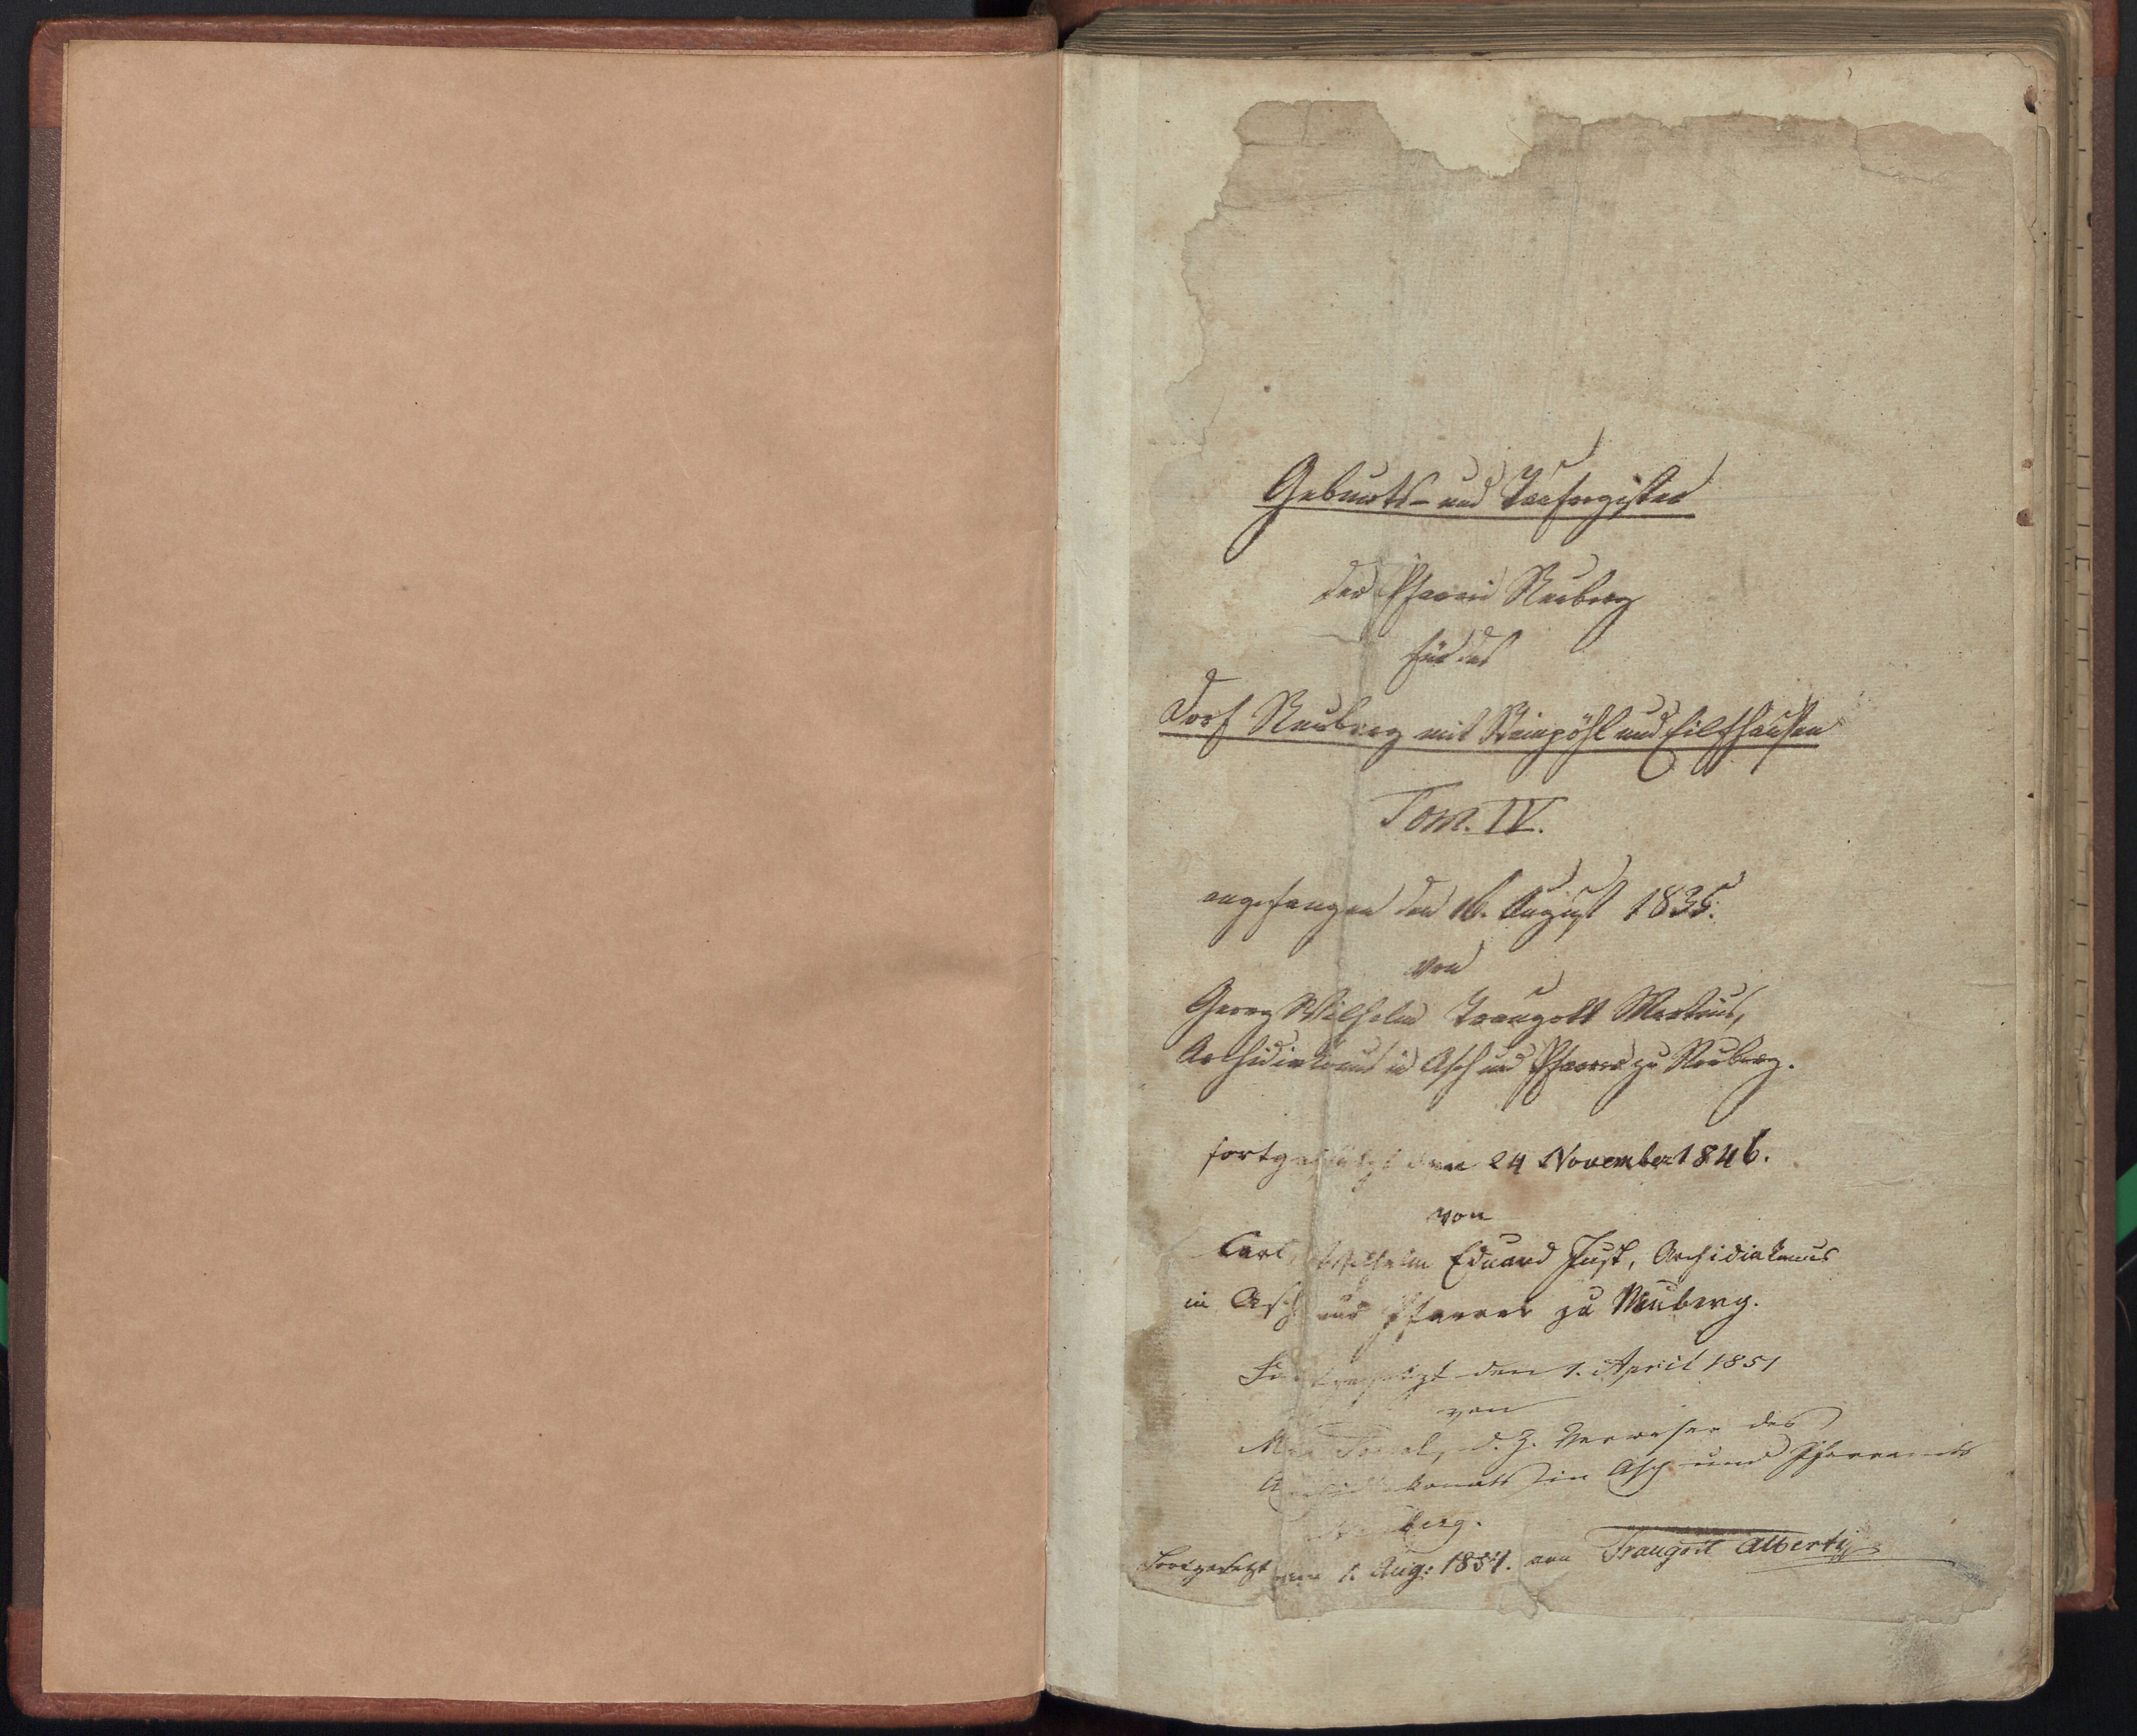 Geburts- und Taufregister
der Pfarrei Neuberg
für das
Dorf Neuberg mit Steinpöhl und Eilfhausen
Tom. IV.
angefangen den 16. August 1835.
von
Georg Wilhelm Traugott Martius,
Archidiakonus in Asch und Pfarrer zu Neuberg.
fortgesetzt den 24 November 1846.
von
Carl Wilhelm Eduard Just, Archidiakonus
in Asch und Pfarrer zu Neuberg.
Fortgesetzt den 1. April 1851
von
d. Z. Verweser des
Archidiakonats in Asch und Pfarramts
Neuberg.
Fortgesetzt vom 1. Aug: 1851. von Traugott Alberti